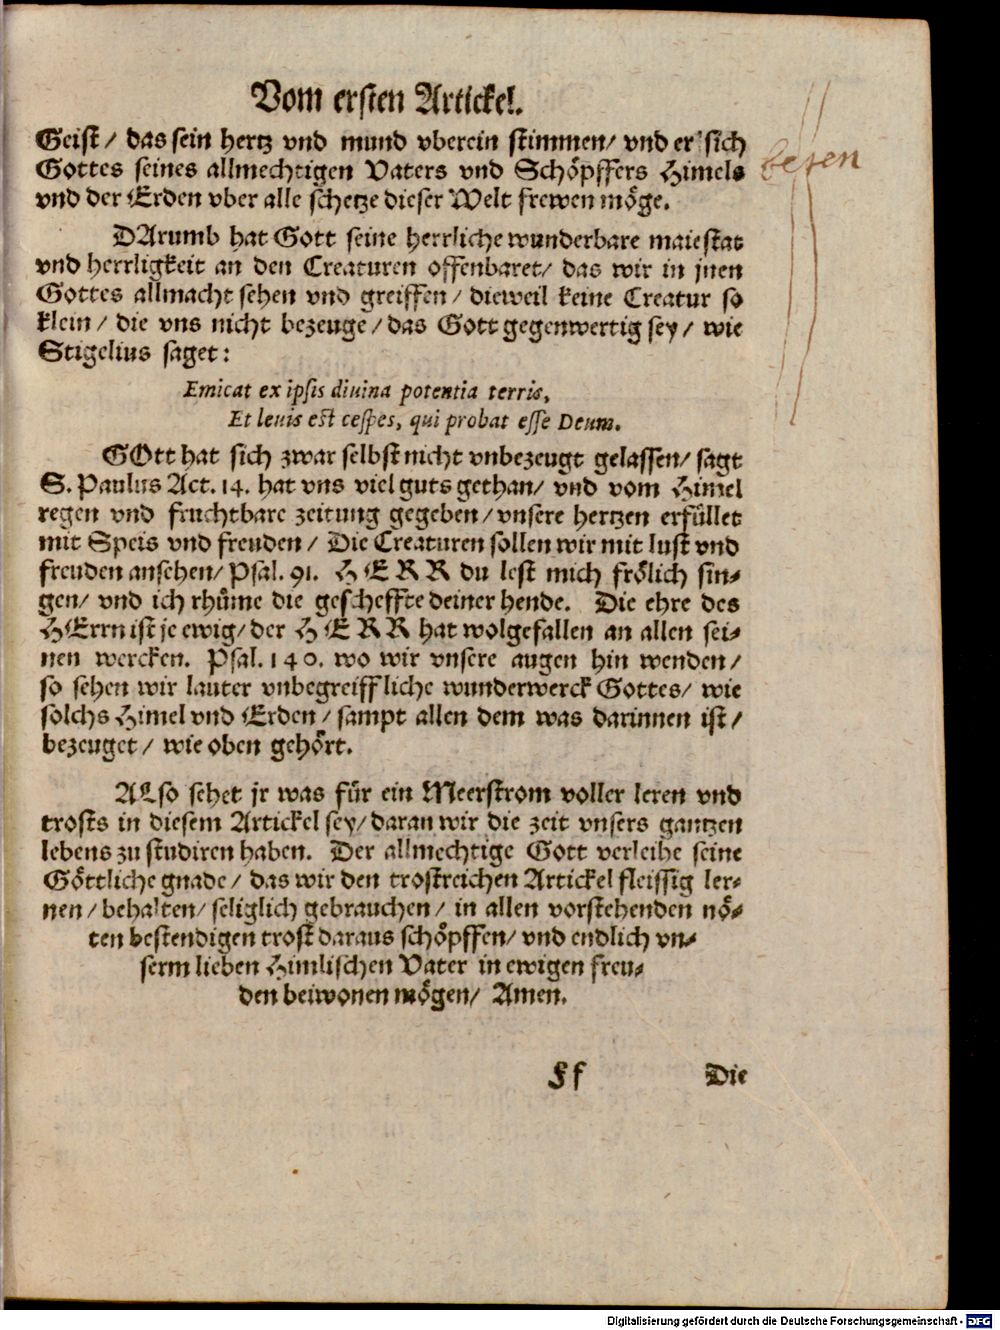 Vom ersten Artickel.
Geist / das sein hertz vnd mund vberein stimmen / vnd er sich
Gottes seines allmechtigen Vaters vnd Schöpffers Himels
vnd der Erden vber alle schetze dieser Welt frewen möge.
DArumb hat Gott seine herrliche wunderbare maiestat
vnd herrligkeit an den Creaturen offenbaret / das wir in jnen
Gottes allmacht sehen vnd greiffen / dieweil keine Creatur so
klein / die vns nicht bezeuge / das Gott gegenwertig sey / wie
Stigelius saget:
Emicat ex ipsis diuina potentia terris,
Et leuis est cespes, qui probat esse Deum.
GOtt hat sich zwar selbst nicht vnbezeugt gelassen / sagt
S. Paulus Act. 14. hat vns viel guts gethan / vnd vom Himel
regen vnd fruchtbare zeitung gegeben / vnsere hertzen erfüllet
mit Speis vnd freuden / Die Creaturen sollen wir mit lust vnd
freuden ansehen / Psal. 91. HERR du lest mich frölich sin-
gen / vnd ich rhüme die gescheffte deiner hende. Die ehre des
HErrn ist je ewig / der HERR hat wolgefallen an allen sei-
nen wercken. Psal. 140. wo wir vnsere augen hin wenden /
so sehen wir lauter vnbegreiffliche wunderwerck Gottes / wie
solchs Himel vnd Erden / sampt allen dem was darinnen ist /
bezeuget / wie oben gehört.
ALso sehet jr was für ein Meerstrom voller leren vnd
trosts in diesem Artickel sey / daran wir die zeit vnsers gantzen
lebens zu studiren haben. Der allmechtige Gott verleihe seine
Göttliche gnade / das wir den trostreichen Artickel fleissig ler-
nen / behalten / seliglich gebrauchen / in allen vorstehenden nö-
ten bestendigen trost daraus schöpffen / vnd endlich vn-
serm lieben Himlischen Vater in ewigen freu-
den beiwonen mögen / Amen.
Ff Die
Digitalisierung gefördert durch die Deutsche Forschungsgemeinschaft - DFG